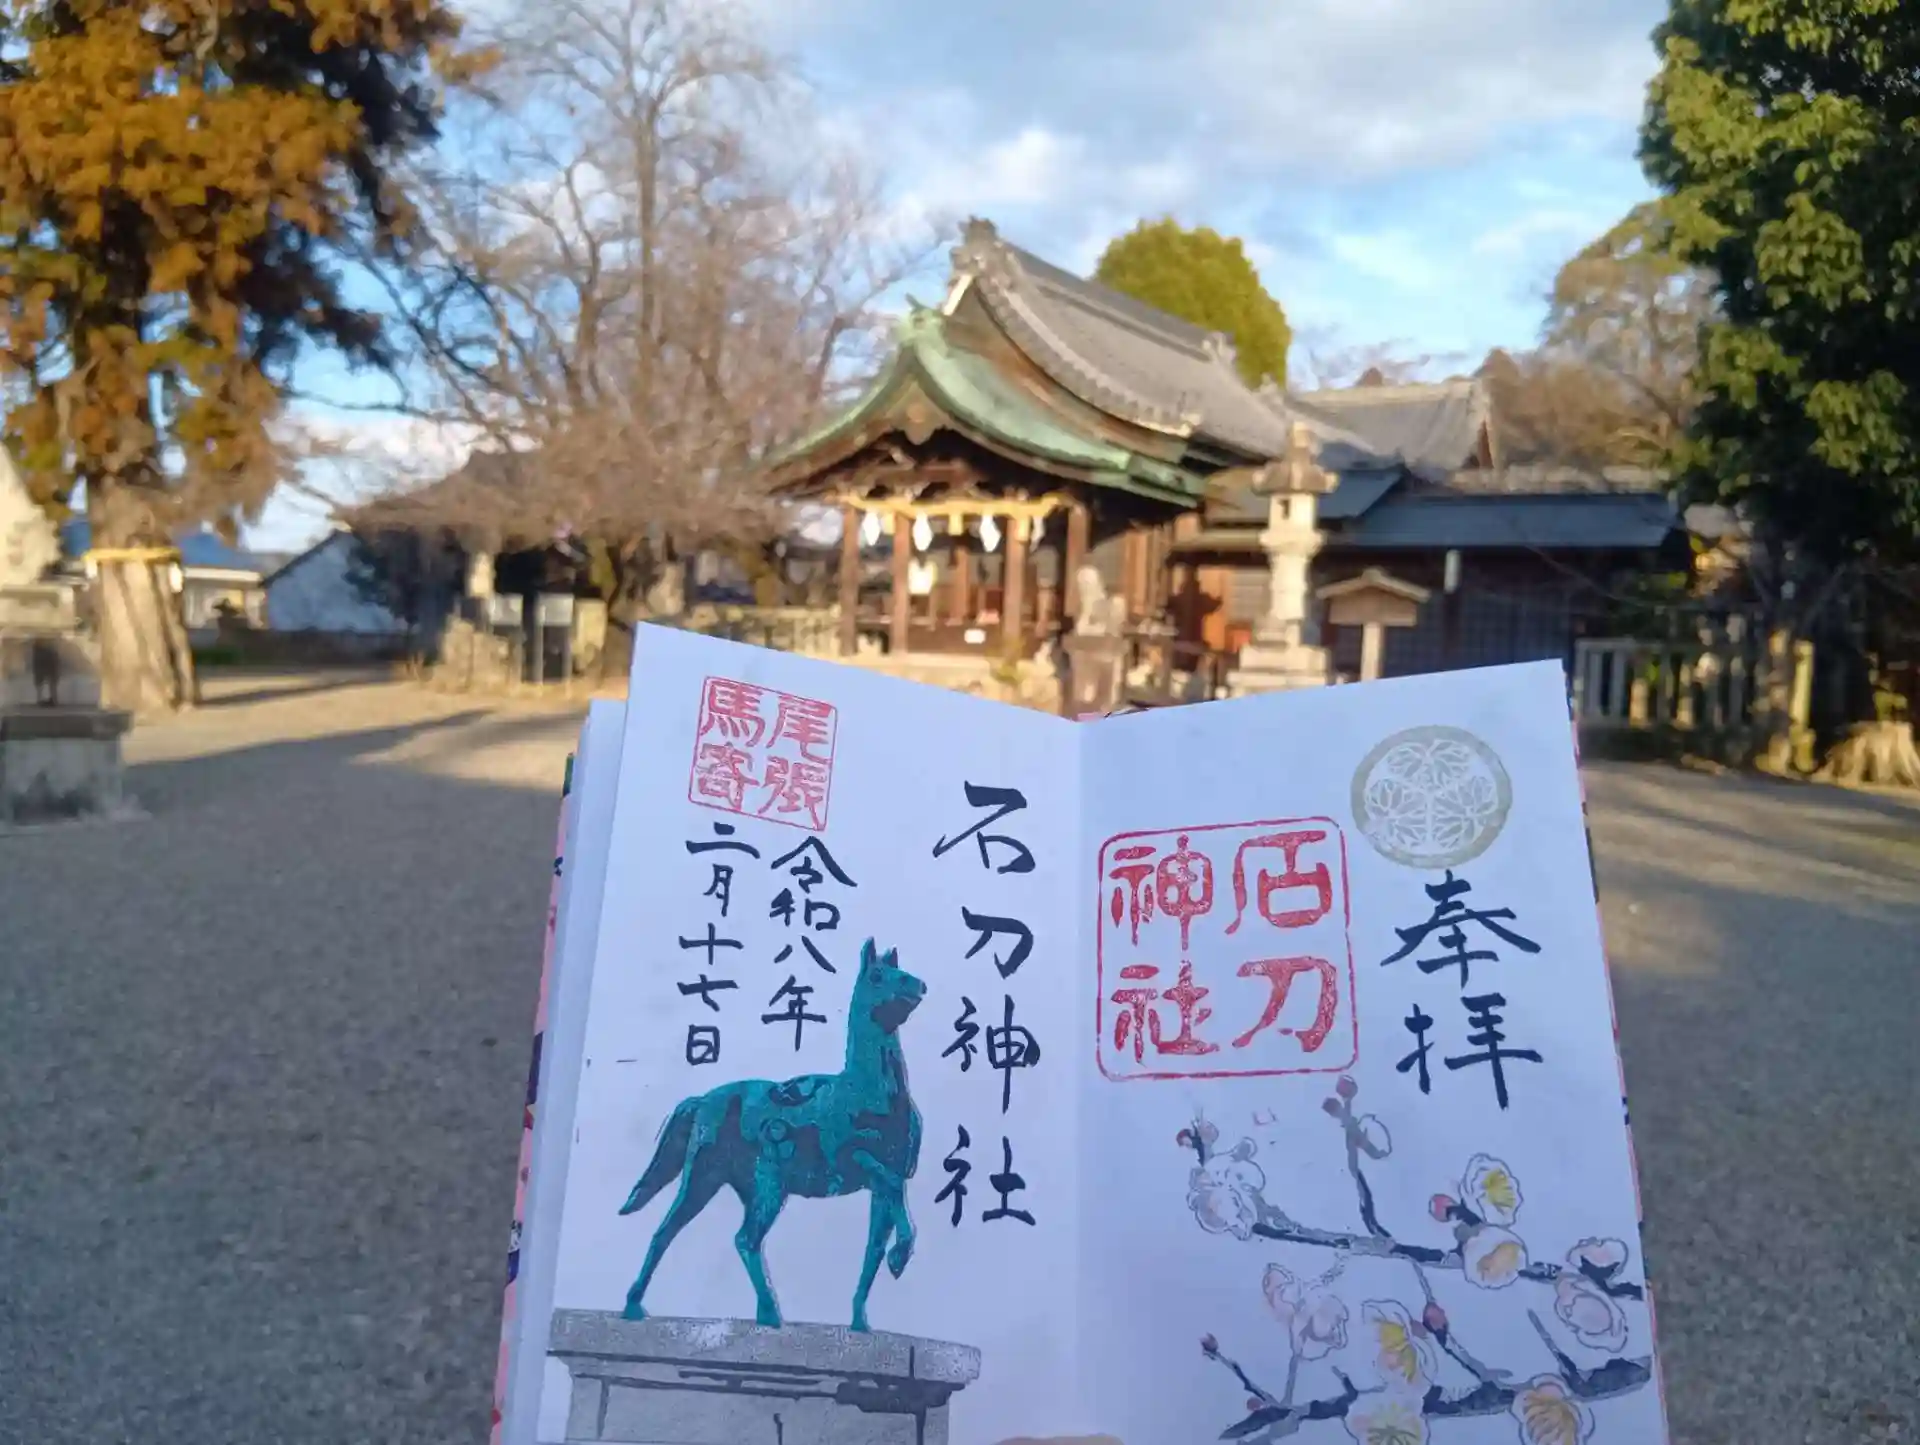 奉拝
石刀
神社
石刀神社
令和八年
二月十七日
尾張
馬寄